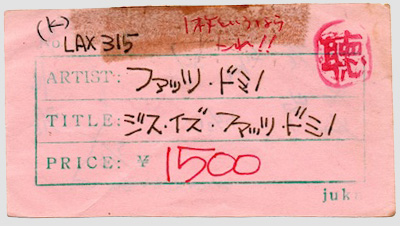 (K)
LAX 315
とれ!!
ARTIST: ファッツ・ドミノ
TITLE: ジス・イズ・ファッツ・ドミノ
PRICE: ¥ 1500
juke